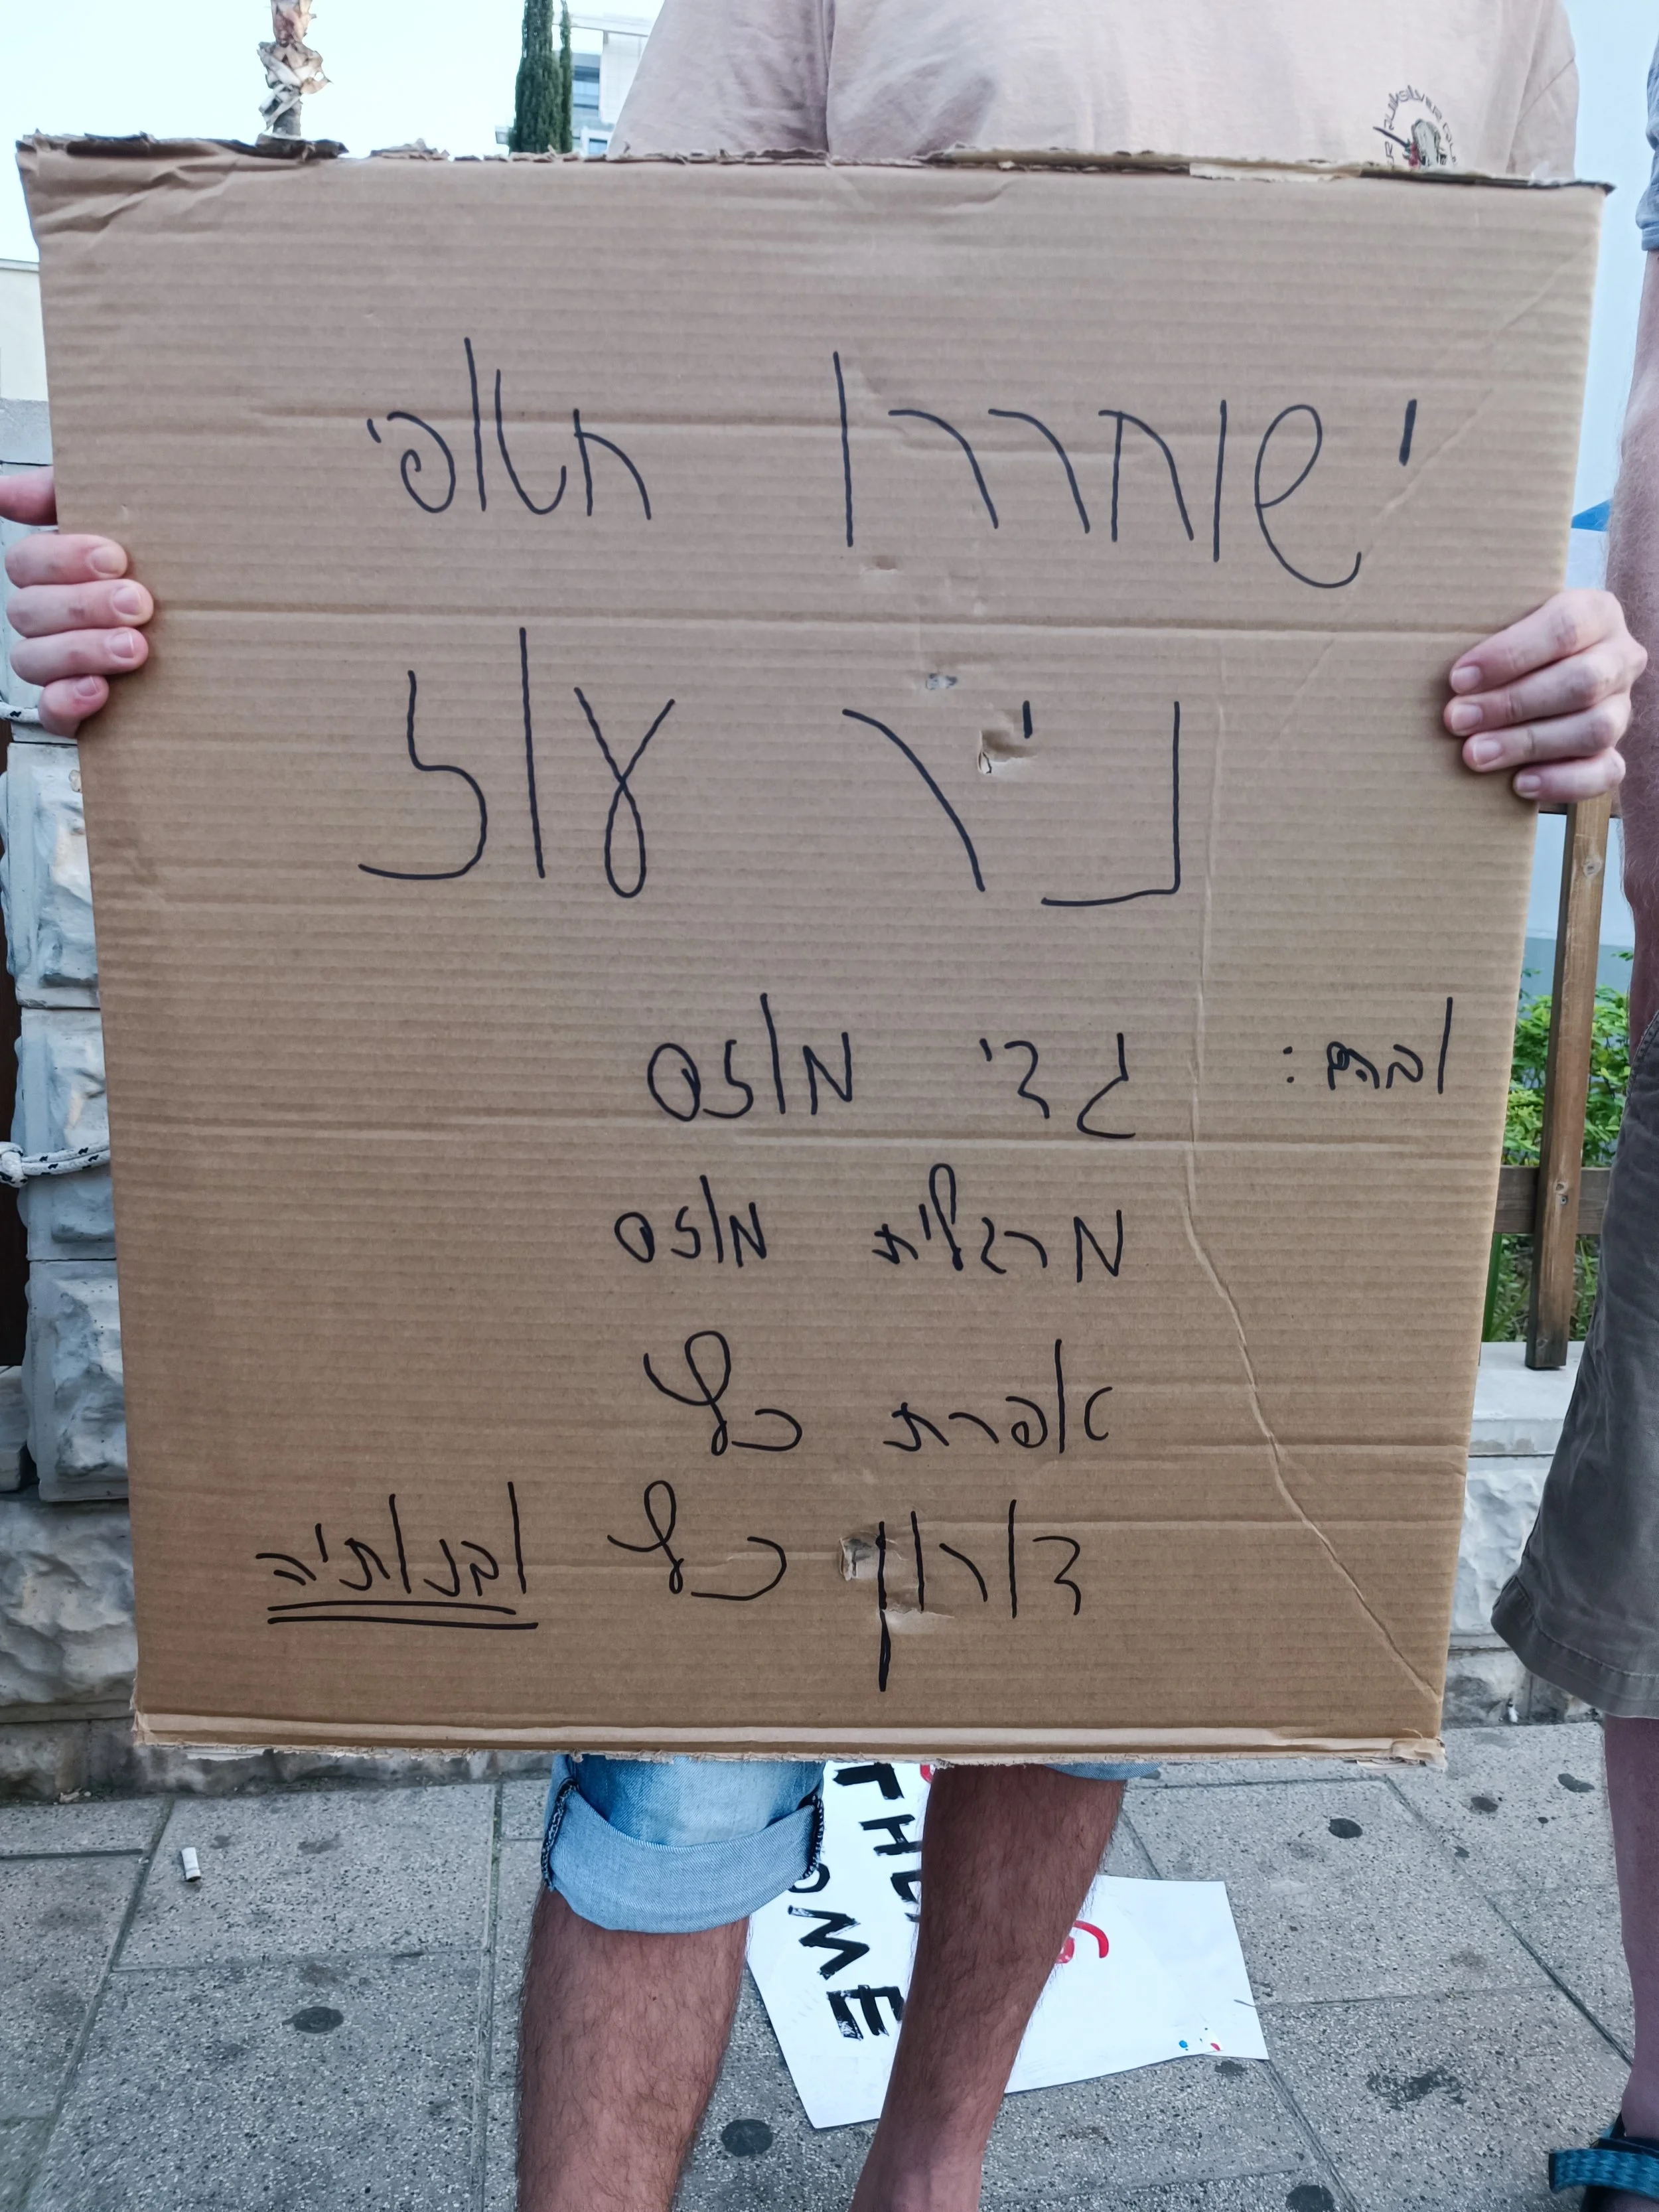 ישוחררו חטופי
ניר עוז
ובהם: גדי מוזס
מרגלית מוזס
אפרת כץ
דורון כץ ובנותיה
THE
OME